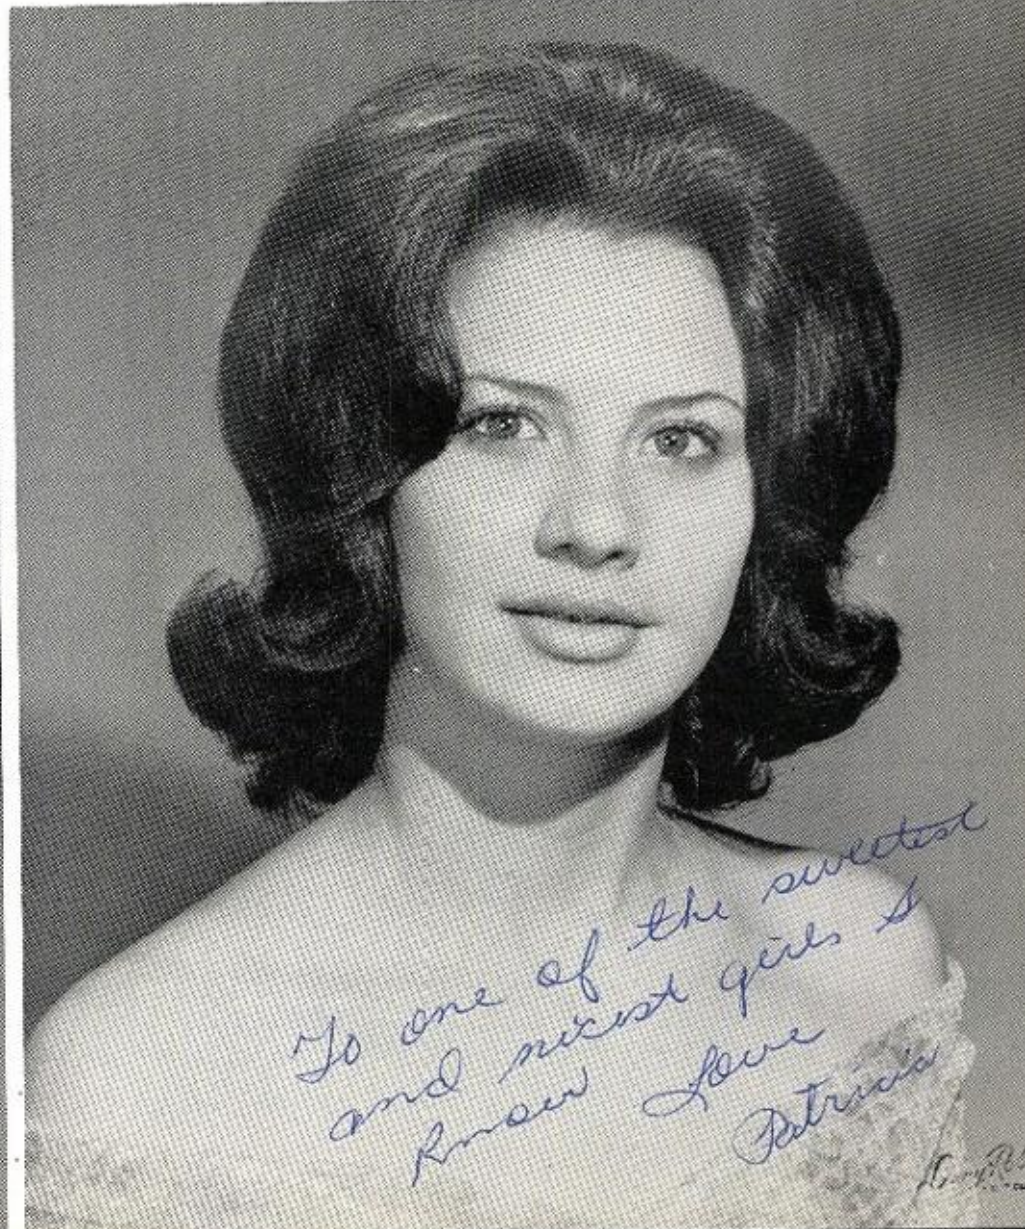 To one of the sweetest
and nicest girls I
know Love
Patricia